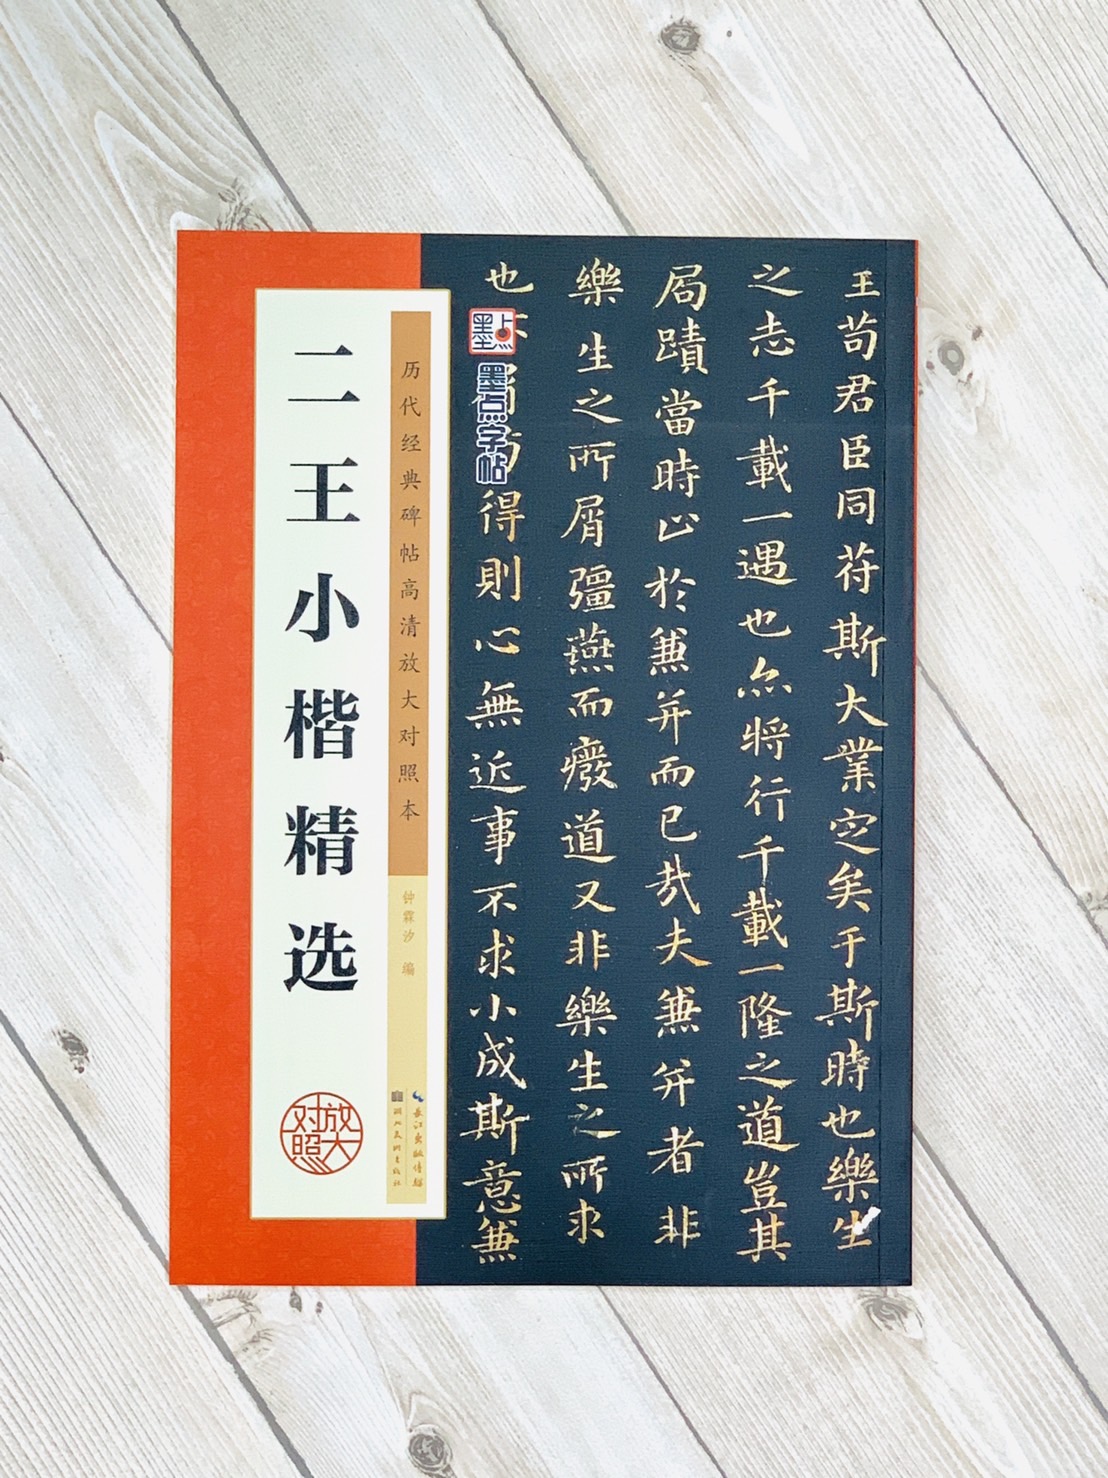 二王小楷精选
历代经典碑帖高清放大对照本
钟霖汐 编
长江出版传媒
湖北美术出版社
放大
对照
墨点
墨点字帖
王苟君臣同苻斯大業定矣于斯時也樂生
之志千載一遇也亦將行千載一隆之道豈其
局蹟當時止於兼并而已哉夫兼并者非
樂生之所屑彊燕而癈道又非樂生之所求
也
得則心無近事不求小成斯意兼